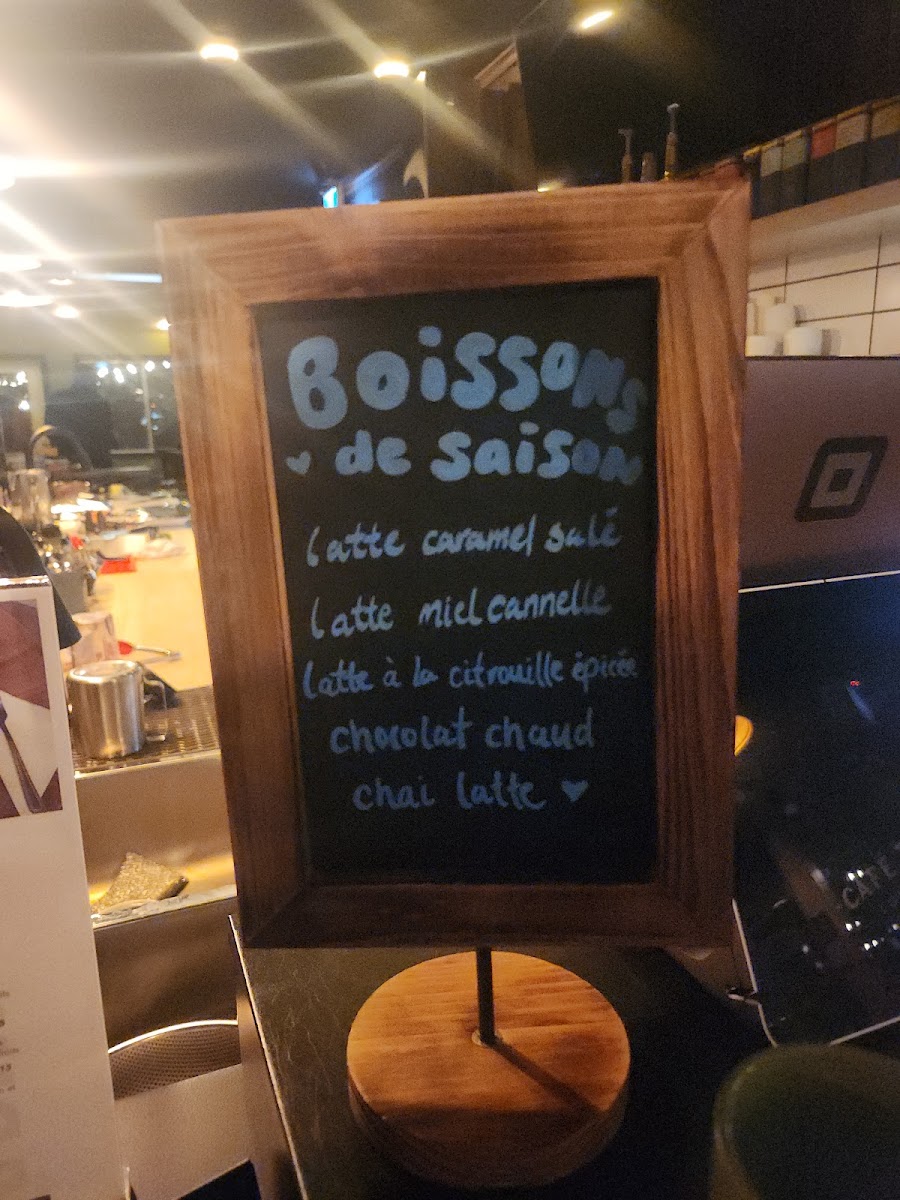 Boissons
de saison
latte caramel salé
latte miel cannelle
latte à la citrouille épicée
chocolat chaud
chai latte
CAFÉ